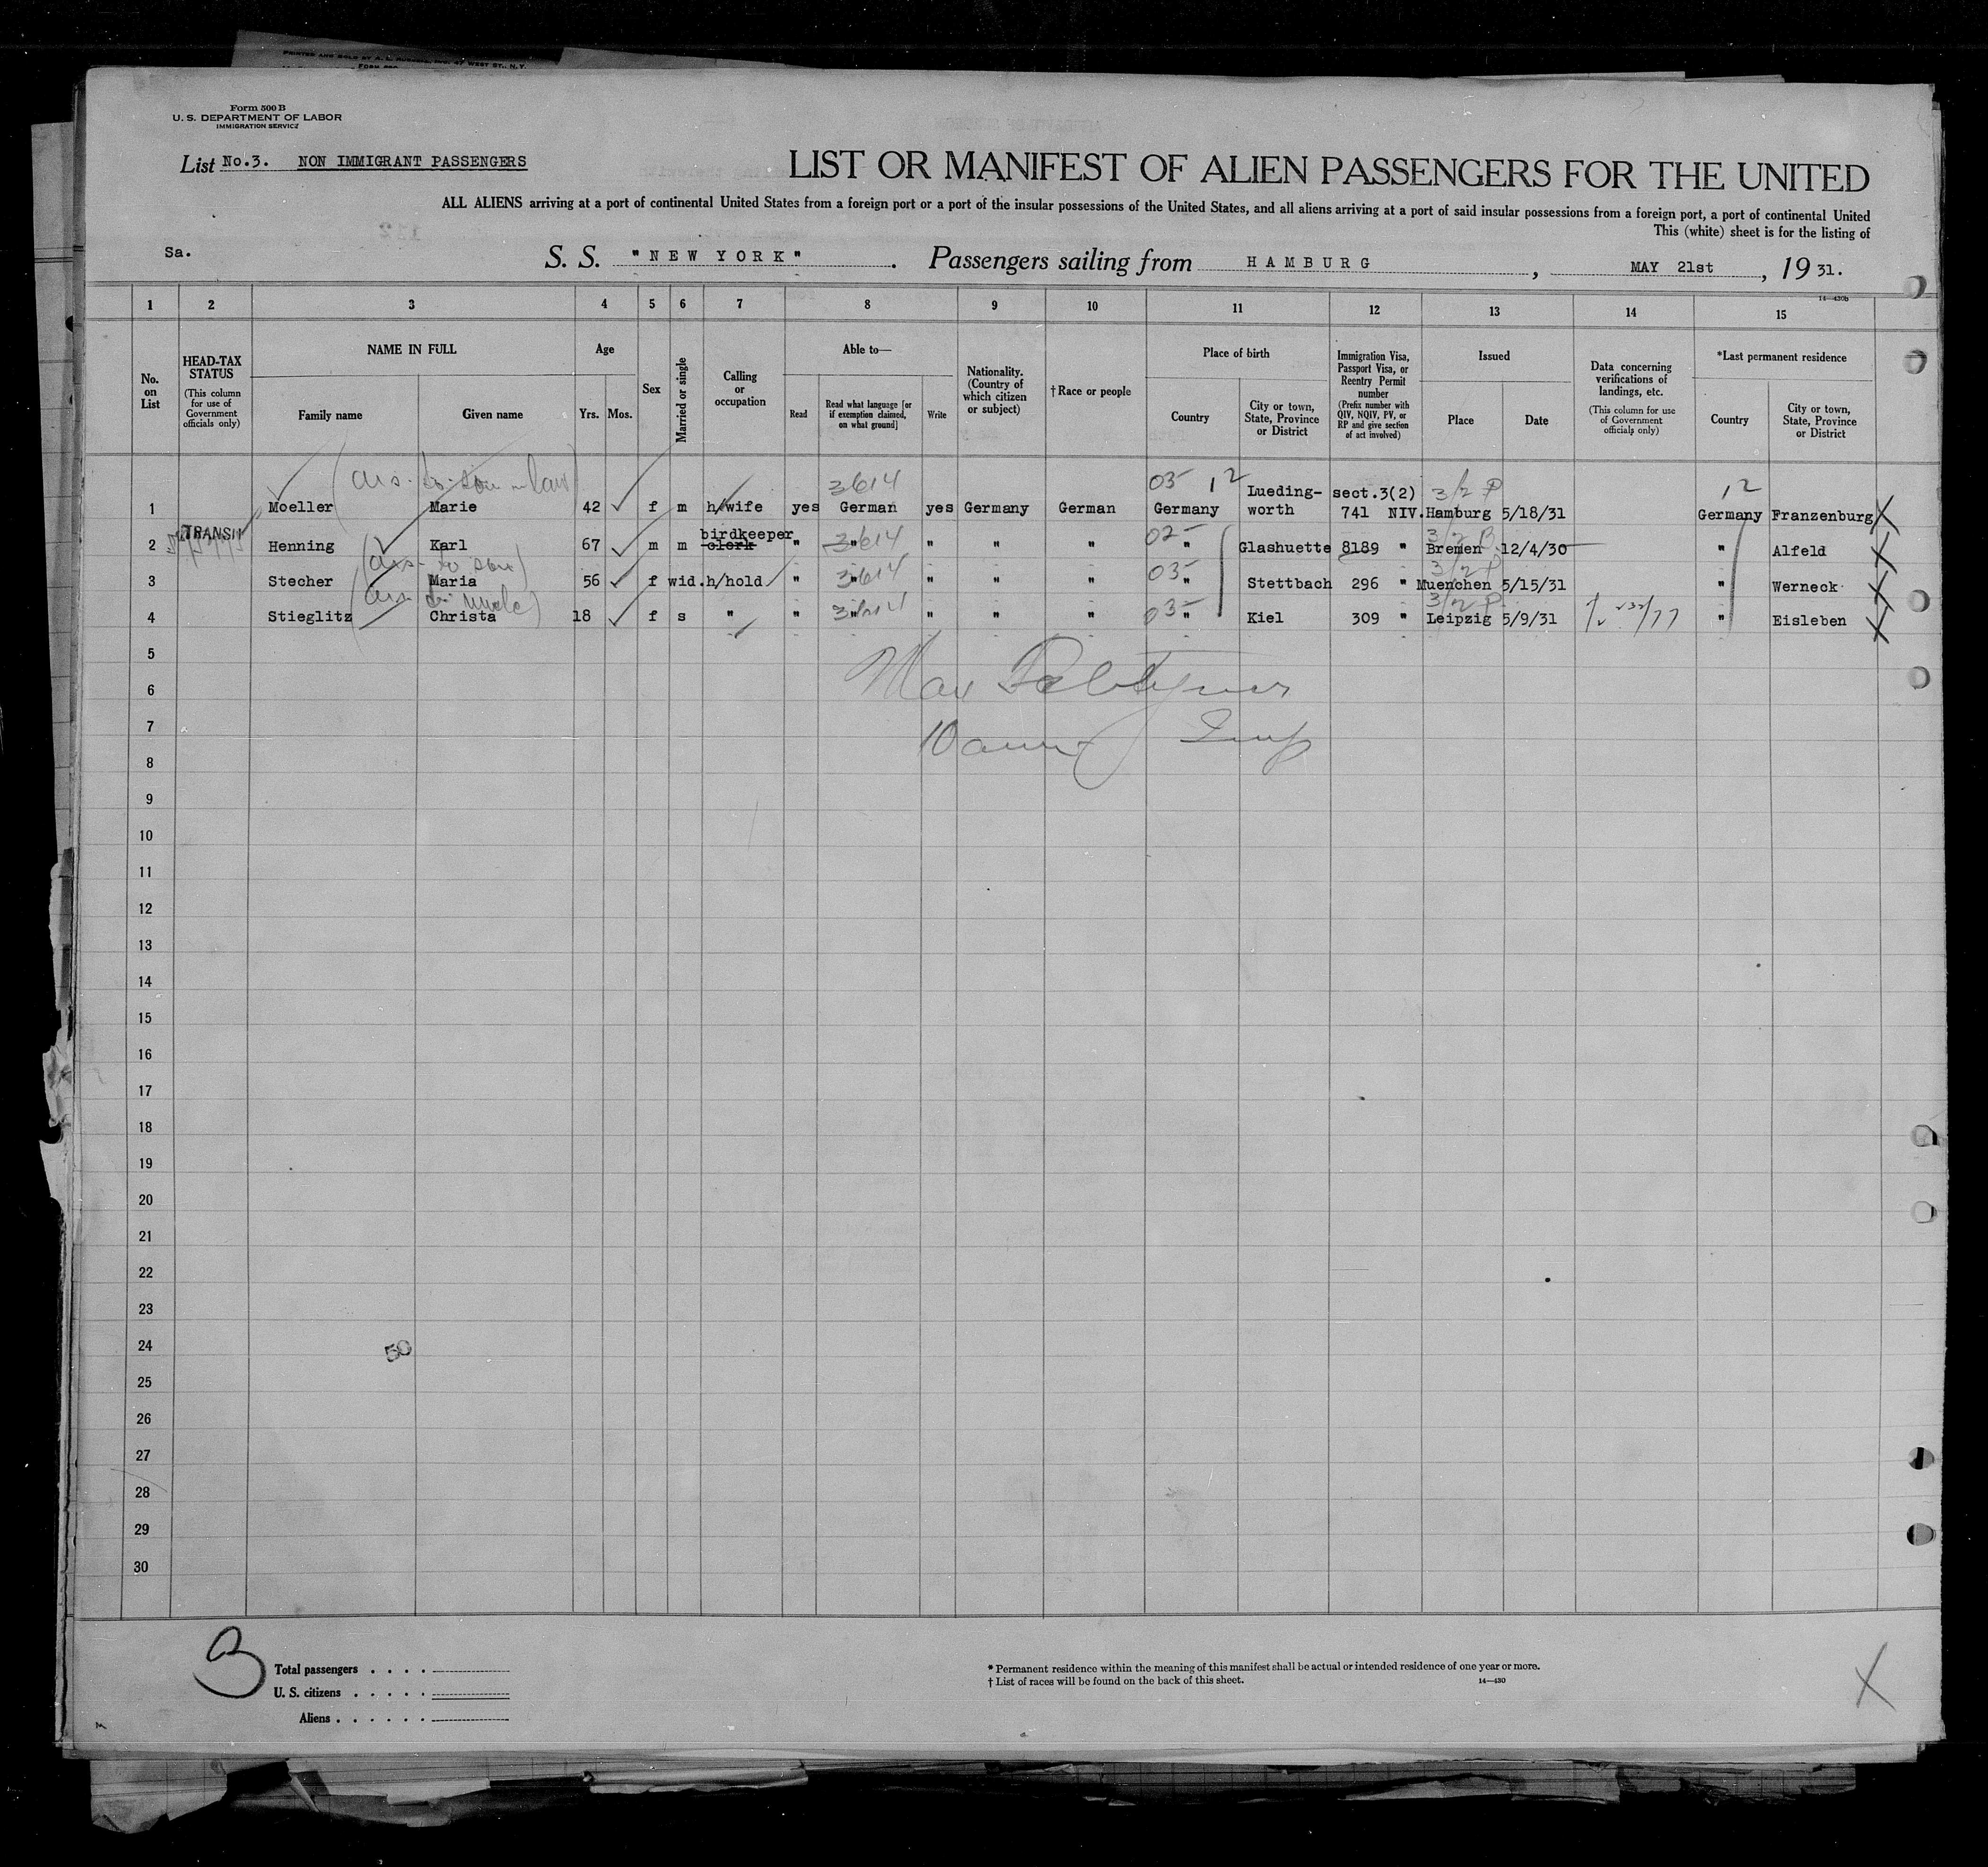 PRINTED AND SOLD BY
47 WEST ST., N.Y.
Form 500 B
U. S. DEPARTMENT OF LABOR
IMMIGRATION SERVICE
List No.3. NON IMMIGRANT PASSENGERS
LIST OR MANIFEST OF ALIEN PASSENGERS FOR THE UNITED
ALL ALIENS arriving at a port of continental United States from a foreign port or a port of the insular possessions of the United States, and all aliens arriving at a port of said insular possessions from a foreign port, a port of continental United
This (white) sheet is for the listing of
Sa.
S. S. "NEW YORK". Passengers sailing from HAMBURG, MAY 21st, 19 31.
14—430b
1 2 3 4 5 6 7 8 9 10 11 12 13 14 15
No. on List
HEAD-TAX STATUS (This column for use of Government officials only)
NAME IN FULL
Family name Given name
Age
Yrs. Mos.
Sex
Married or single
Calling or occupation
Able to—
Read Read what language [or if exemption claimed, on what ground] Write
Nationality. (Country of which citizen or subject)
† Race or people
Place of birth
Country City or town, State, Province or District
Immigration Visa, Passport Visa, or Reentry Permit number (Prefix number with QIV, NQIV, PV, or RP and give section of act involved)
Issued
Place Date
Data concerning verifications of landings, etc. (This column for use of Government officials only)
*Last permanent residence
Country City or town, State, Province or District
son-in-law 3614 03 12 3/2 P 12
Lueding- sect.3(2)
1 Moeller Marie 42 f m h/wife yes German yes Germany German Germany worth 741 NIV. Hamburg 5/18/31 Germany Franzenburg X
TRANSIT birdkeeper 3614 02 3/2 B
2 Henning Karl 67 m m clerk " " " " " " Glashuette 8189 " Bremen 12/4/30 " Alfeld X
to son 3614 03 3/2 P
3 Stecher Maria 56 f wid. h/hold " " " " " " Stettbach 296 " Muenchen 5/15/31 " Werneck X
uncle 3614 03 3/2 P
4 Stieglitz Christa 18 f s " " " " " " " Kiel 309 " Leipzig 5/9/31 " Eisleben X
5
6 Max
7 10 Insp
8
9
10
11
12
13
14
15
16
17
18
19
20
21
22
23
24 50
25
26
27
28
29
30
3
Total passengers . . . .
U. S. citizens . . . . .
Aliens . . . . . .
* Permanent residence within the meaning of this manifest shall be actual or intended residence of one year or more.
† List of races will be found on the back of this sheet. 14—430
X